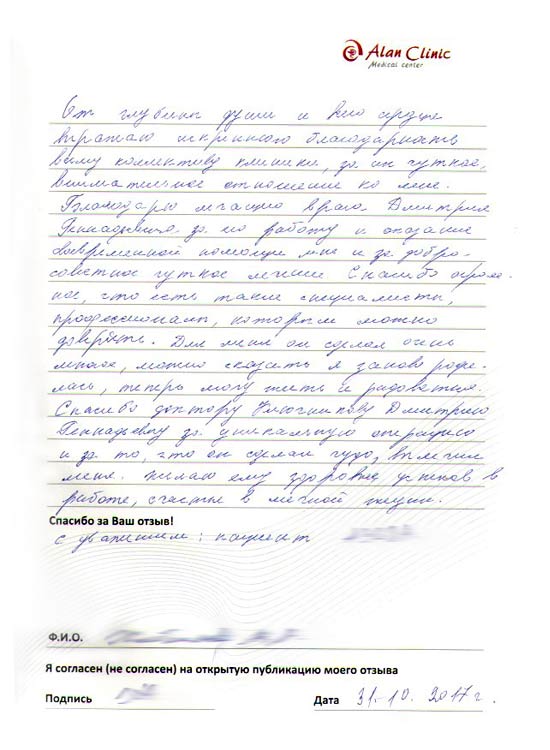 Alan Clinic
Medical center
От глубины души и всего сердца
выражаю искреннюю благодарность
вашему коллективу клиники, за их чуткое,
внимательное отношение ко мне.
Благодарю лечащего врача Дмитрия
Геннадьевича за его работу и оказание
своевременной помощи мне и за добро-
советное чуткое лечение Спасибо огром-
ное, что есть такие специалисты,
профессионалы, которым можно
доверять. Для меня он сделал очень
многое, можно сказать я заново роди-
лась, теперь могу жить и радоваться.
Спасибо доктору Ключникову Дмитрию
Геннадьевичу за уникальную операцию
и за то, что он сделал чудо, вылечил
меня. Желаю ему здоровья, успехов в
работе, счастья в личной жизни.
Спасибо за Ваш отзыв!
с уважением: пациент
Ф.И.О.
Я согласен (не согласен) на открытую публикацию моего отзыва
Подпись Дата 31.10.2017г.